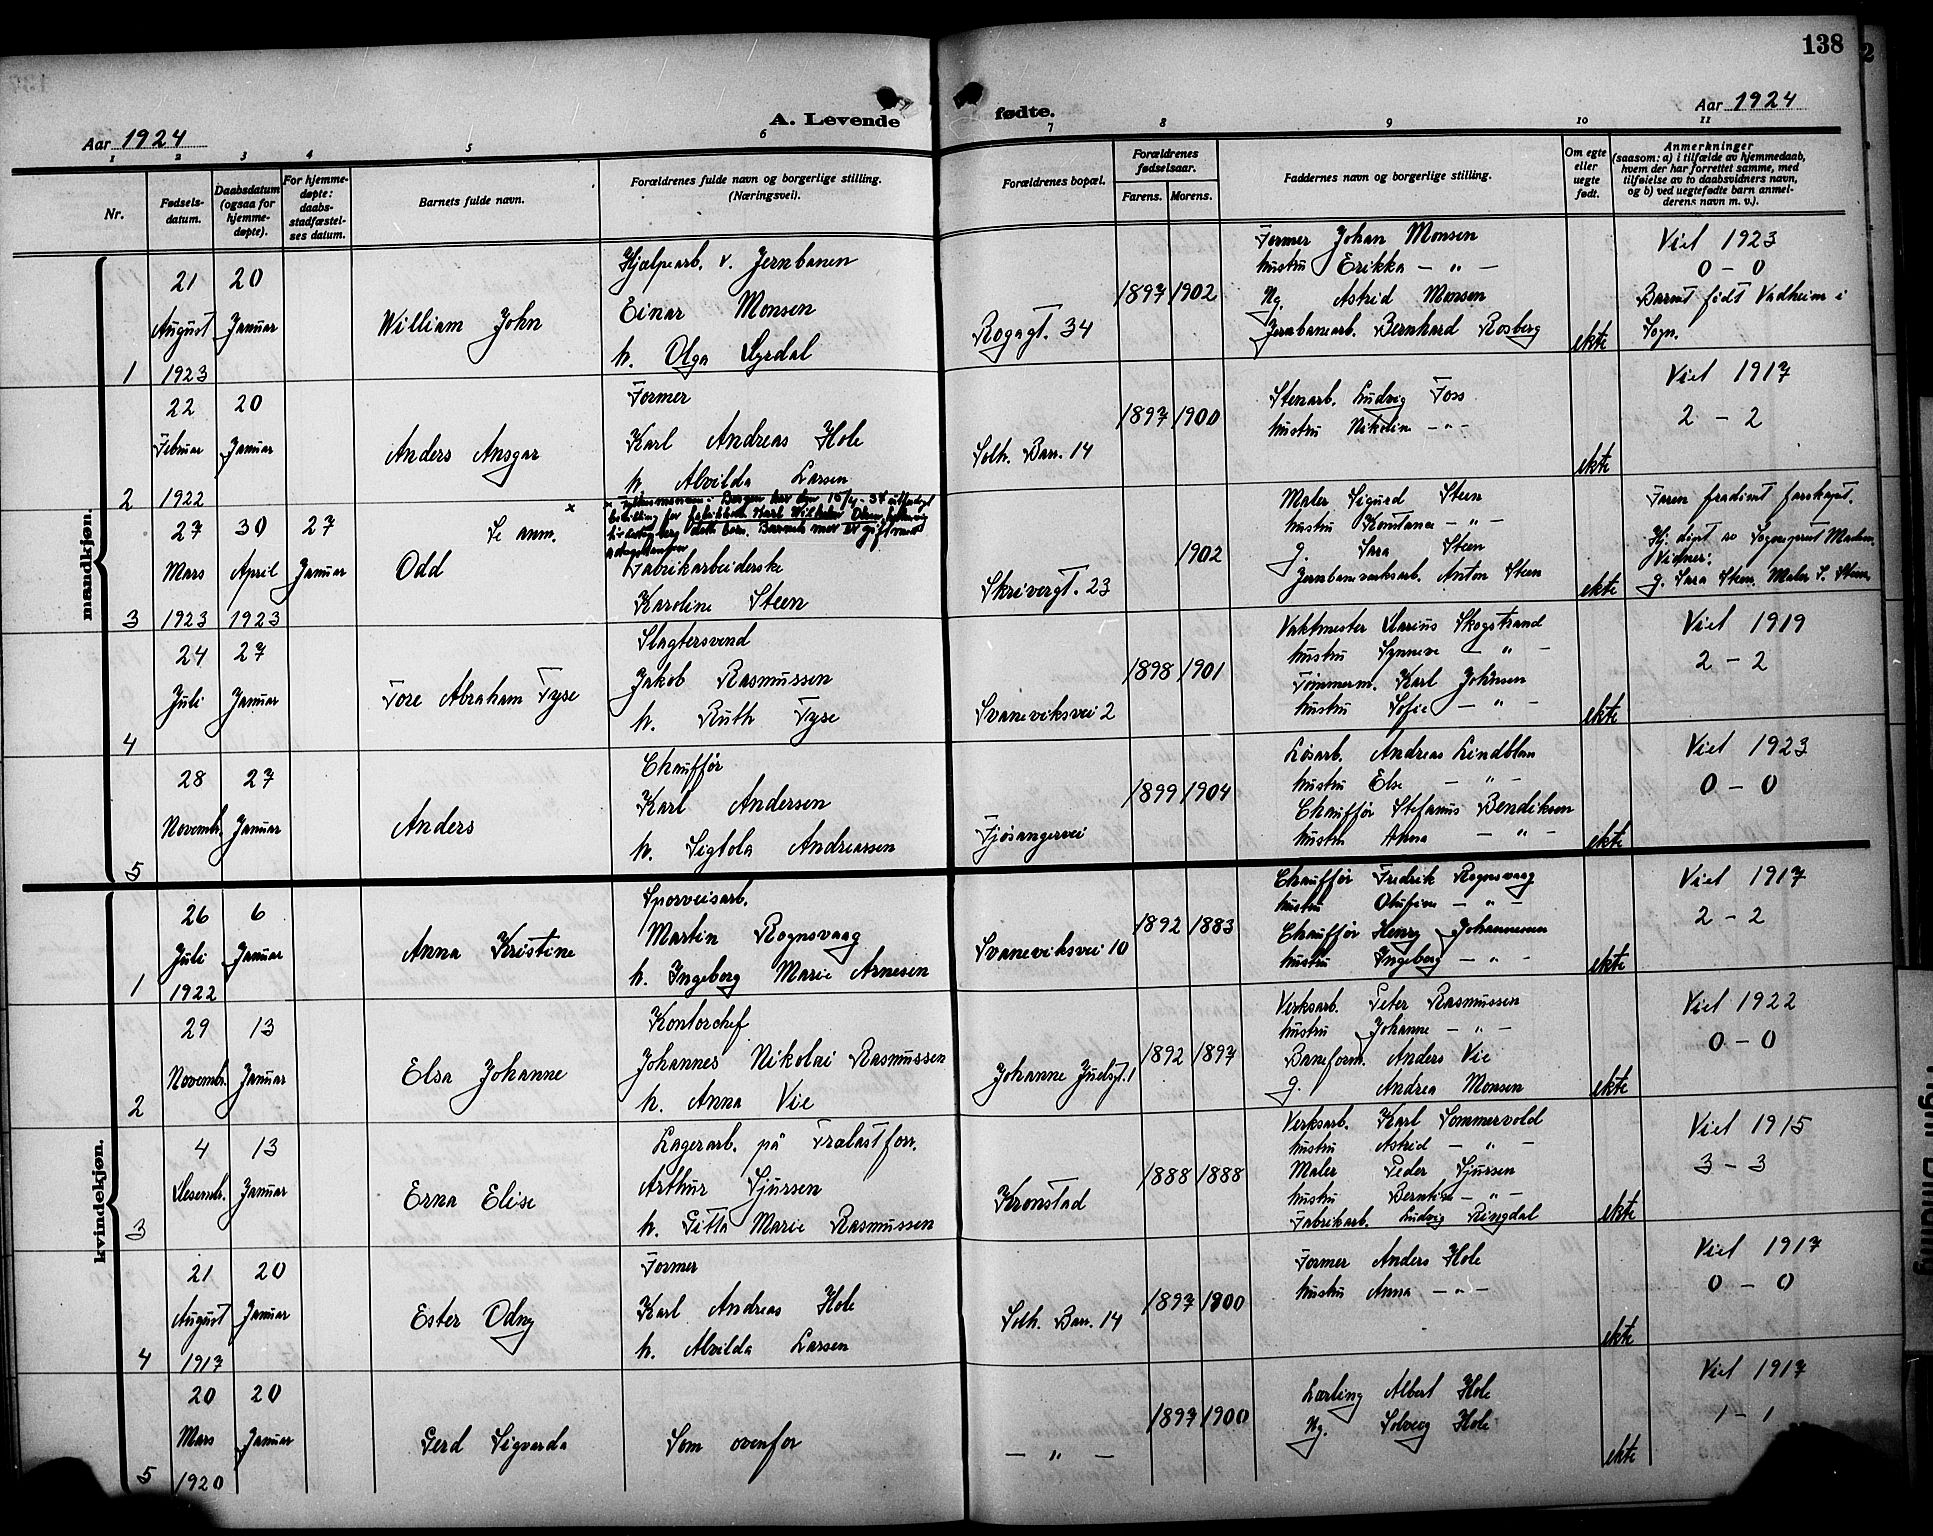 138
Aar 1924
A. Levende fødte.
Aar 1924
1 2 3 4 5 6 7 8 9 10 11
Nr.
Fødsels-
datum.
Daabsdatum
(ogsaa for
hjemme-
døpte).
For hjemme-
døpte:
daabs-
stadfæstel-
ses datum.
Barnets fulde navn.
Forældrenes fulde navn og borgerlige stilling.
(Næringsvei).
Forældrenes bopæl.
Forældrenes
fødselsaar.
Farens. Morens.
Faddernes navn og borgerlige stilling.
Om egte
eller
uegte
født.
Anmerkninger
(saasom: a) i tilfælde av hjemmedaab,
hvem der har forrettet samme, med
tilføielse av to daabsvidners navn,
og b) ved uegtefødte barn anmel-
derens navn m. v.).
mandkjøn.
1
21
August
1923
20
Januar
William John
Hjælpearb. v. Jernbanen
Einar Monsen
h. Olga Lyrdal
Rogagt. 34
1897 1902
Former Johan Monsen
hustru Erikka — " —
Ug. Astrid Monsen
Jernbanearb. Bernhard Rosberg
ekte
Viet 1923
0 - 0
Barnet født Vadheim i
Sogn.
2
22
Februar
1922
20
Januar
Anders Ansgar
Former
Karl Andreas Hole
h. Alvilda Larsen
Solh. Barr. 14
1897 1900
Stenarb. Ludvig Foss
hustru Nikolin - " -
ekte
Viet 1917
2 - 2
3
27
Mars
1923
30
April
1923
27
Januar
Se anm. x
Odd
Fabrikarbeiderske
Karoline Steen
Skrivergt. 23
1902
Maler Sigurd Steen
hustru Konstanse - " -
g. Sara Steen
Jernbaneverksarb. Anton Steen
ekte
Faren fradømt farskapet.
Hj. døpt av Sogneprest Madsen
Vidner:
g. Sara Steen, Maler S. Steen
4
24
Juli
27
Januar
Tore Abraham Tyse
Slagtersvend
Jakob Rasmussen
h. Ruth Tyse
Svaneviksvei 2
1898 1901
Vaktmester Marius Skogstrand
hustru Synneve — " —
Tømmerm. Karl Johnsen
hustru Sofie — " —
ekte
Viet 1919
2 - 2
5
28
Novembr.
27
Januar
Anders
Chauffør
Karl Andersen
h. Sigtola Andreassen
Fjøsangervei
1899 1904
Løsarb. Andreas Lindblau
hustru Else — " —
Chauffør Stefanus Bendiksen
hustru Anna — " —
ekte
Viet 1923
0 - 0
kvindekjøn.
1
26
Juli
1922
6
Januar
Anna Kristine
Sporveisarb.
Martin Rognsvaag
h. Ingeborg Marie Arnesen
Svaneviksvei 10
1892 1883
Chauffør Fredrik Rognsvaag
hustru Olufine — " —
Chauffør Henry Johannesen
hustru Ingeborg — " —
ekte
Viet 1917
2 - 2
2
29
Novembr.
13
Januar
Elsa Johanne
Kontorchef
Johannes Nikolai Rasmussen
h. Anna Vie
Johanne Juelsgt. 1
1892 1897
Verksarb. Peter Rasmussen
hustru Johanne — " —
Baneform. Anders Vie
g. Andrea Monsen
ekte
Viet 1922
0 - 0
3
4
Desembr.
13
Januar
Erna Elise
Lagerarb. på Trælastforr.
Arthur Sjursen
h. Gitta Marie Rasmussen
Kronstad
1888 1888
Verksarb. Karl Sommervold
hustru Astrid — " —
Maler Peder Sjursen
hustru Berntine — " —
Fabrikarb. Ludvig Ringdal
ekte
Viet 1915
3 - 3
4
21
August
1917
20
Januar
Ester Odny
Former
Karl Andreas Hole
h. Alvilda Larsen
Solh. Barr. 14
1897 1900
Former Anders Hole
hustru Anna — " —
ekte
Viet 1917
0 - 0
5
20
Mars
1920
20
Januar
Gerd Sigvarda
Som ovenfor
— " —
1897 1900
Lærling Albert Hole
Ug. Solveig Hole
ekte
Viet 1917
1 - 1